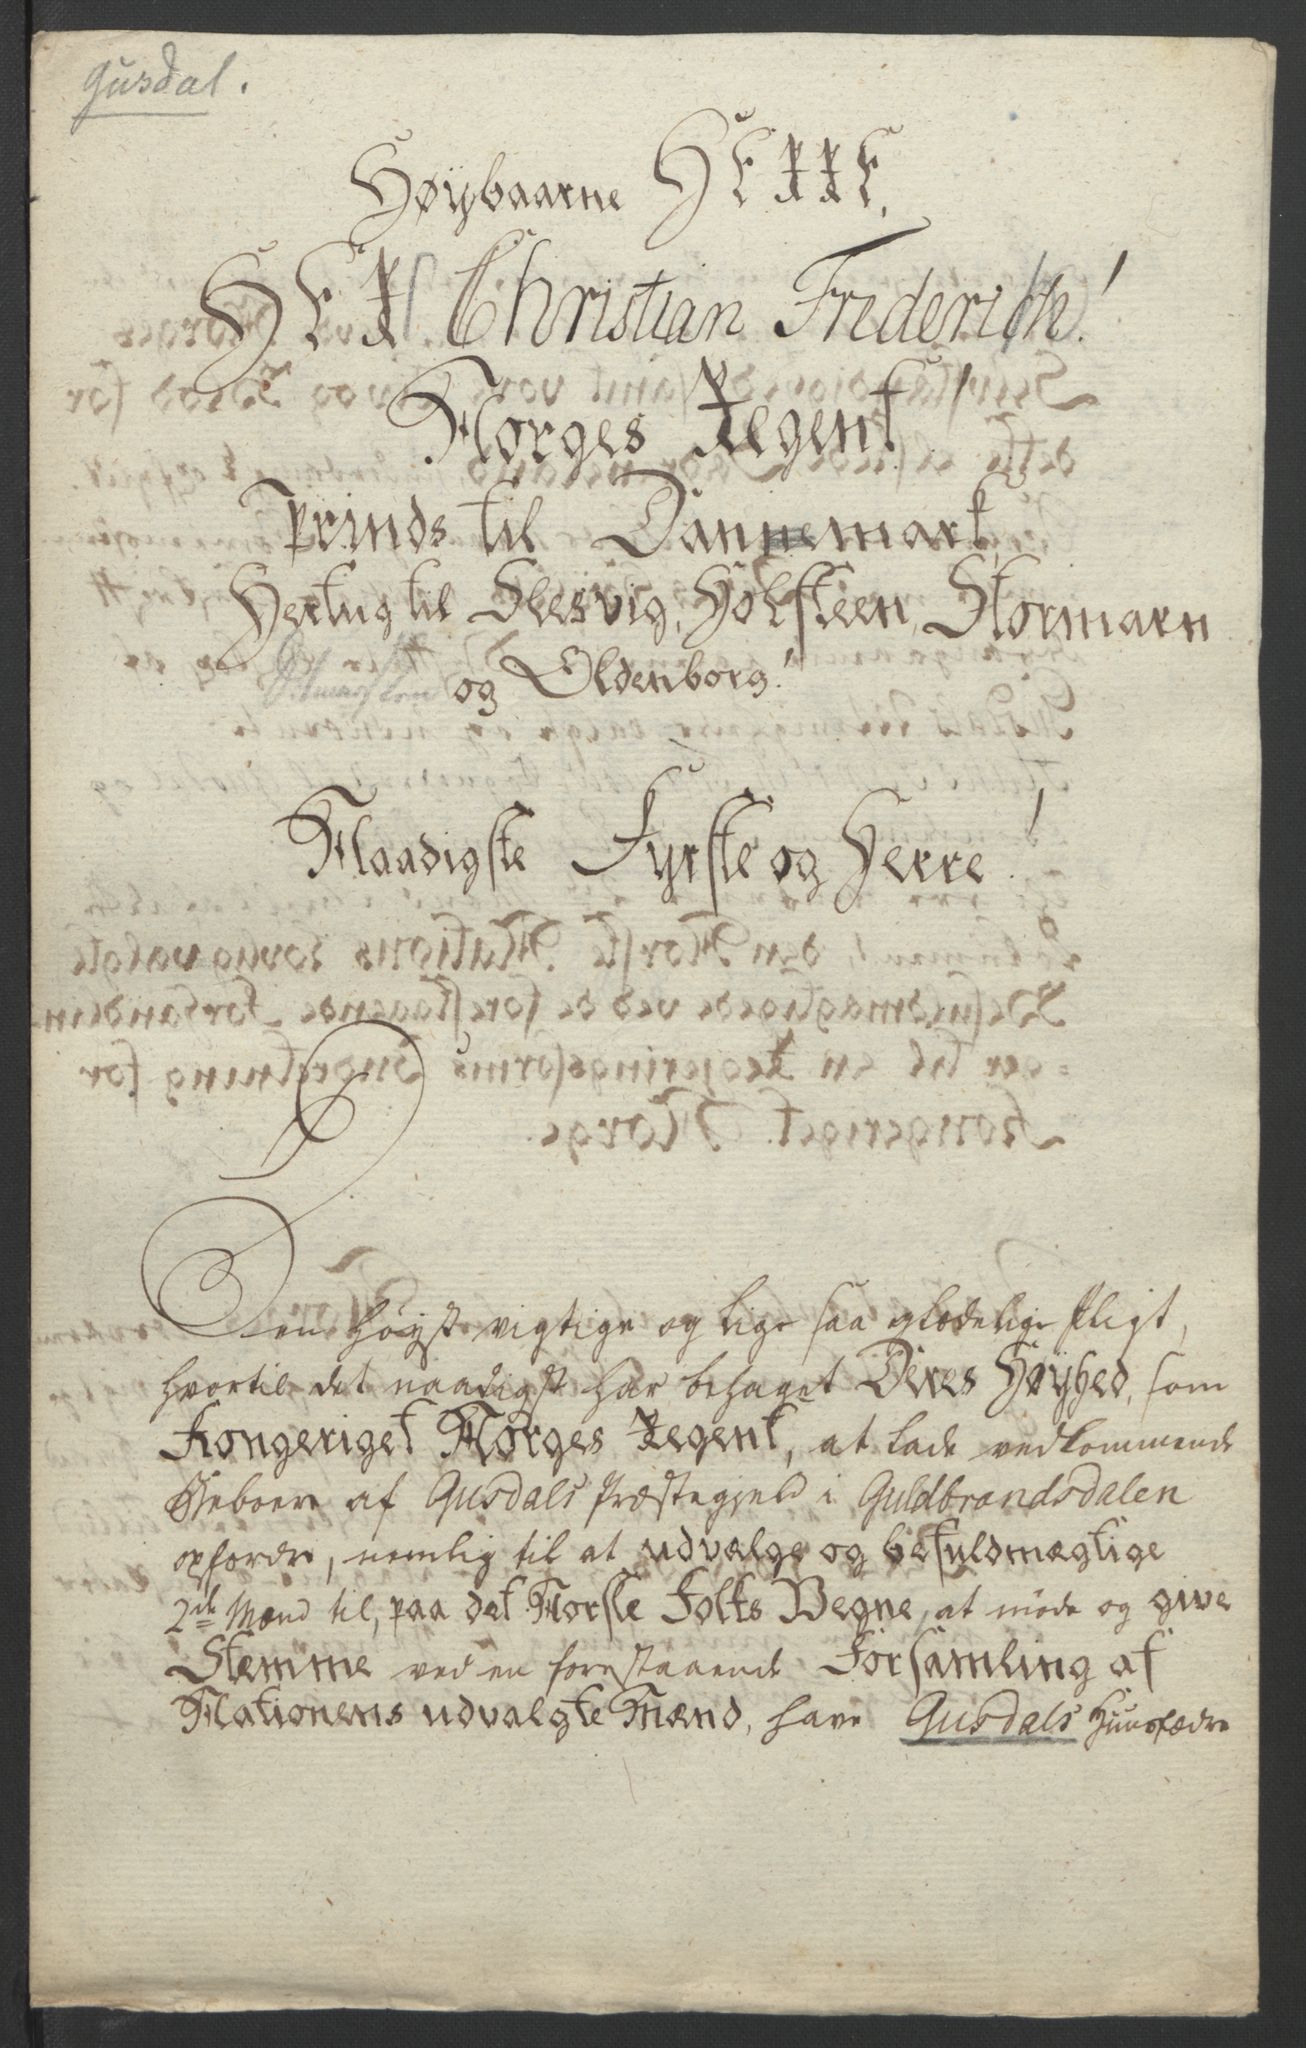 Gusdal.
Høÿbaarne HERRE,
HERR Christian Frederich!
Norges Regent!
Prinds til Dannemark,
Hertug til Slesvig, Holsteen, Stormarn
Ditmarsken og Oldenborg!
Naadigste Fyrste og Herre!
Den høyst vigtige og lige saa glædelige Pligt,
hvortil det naadigst har behaget Deres Høÿhed, som
Kongeriget Norges Regent, at lade vedkommende
Beboere af Gusdals Præstegjeld i Guldbrandsdalen
opfordre, nemlig til at udvælge og befuldmægtige
2de Mænd til, paa det Norske Folks Vegne, at møde og give
Stemme ved en forestaaende Forsamling af
Nationens udvalgte Mænd, have Gusdals Huusfædre